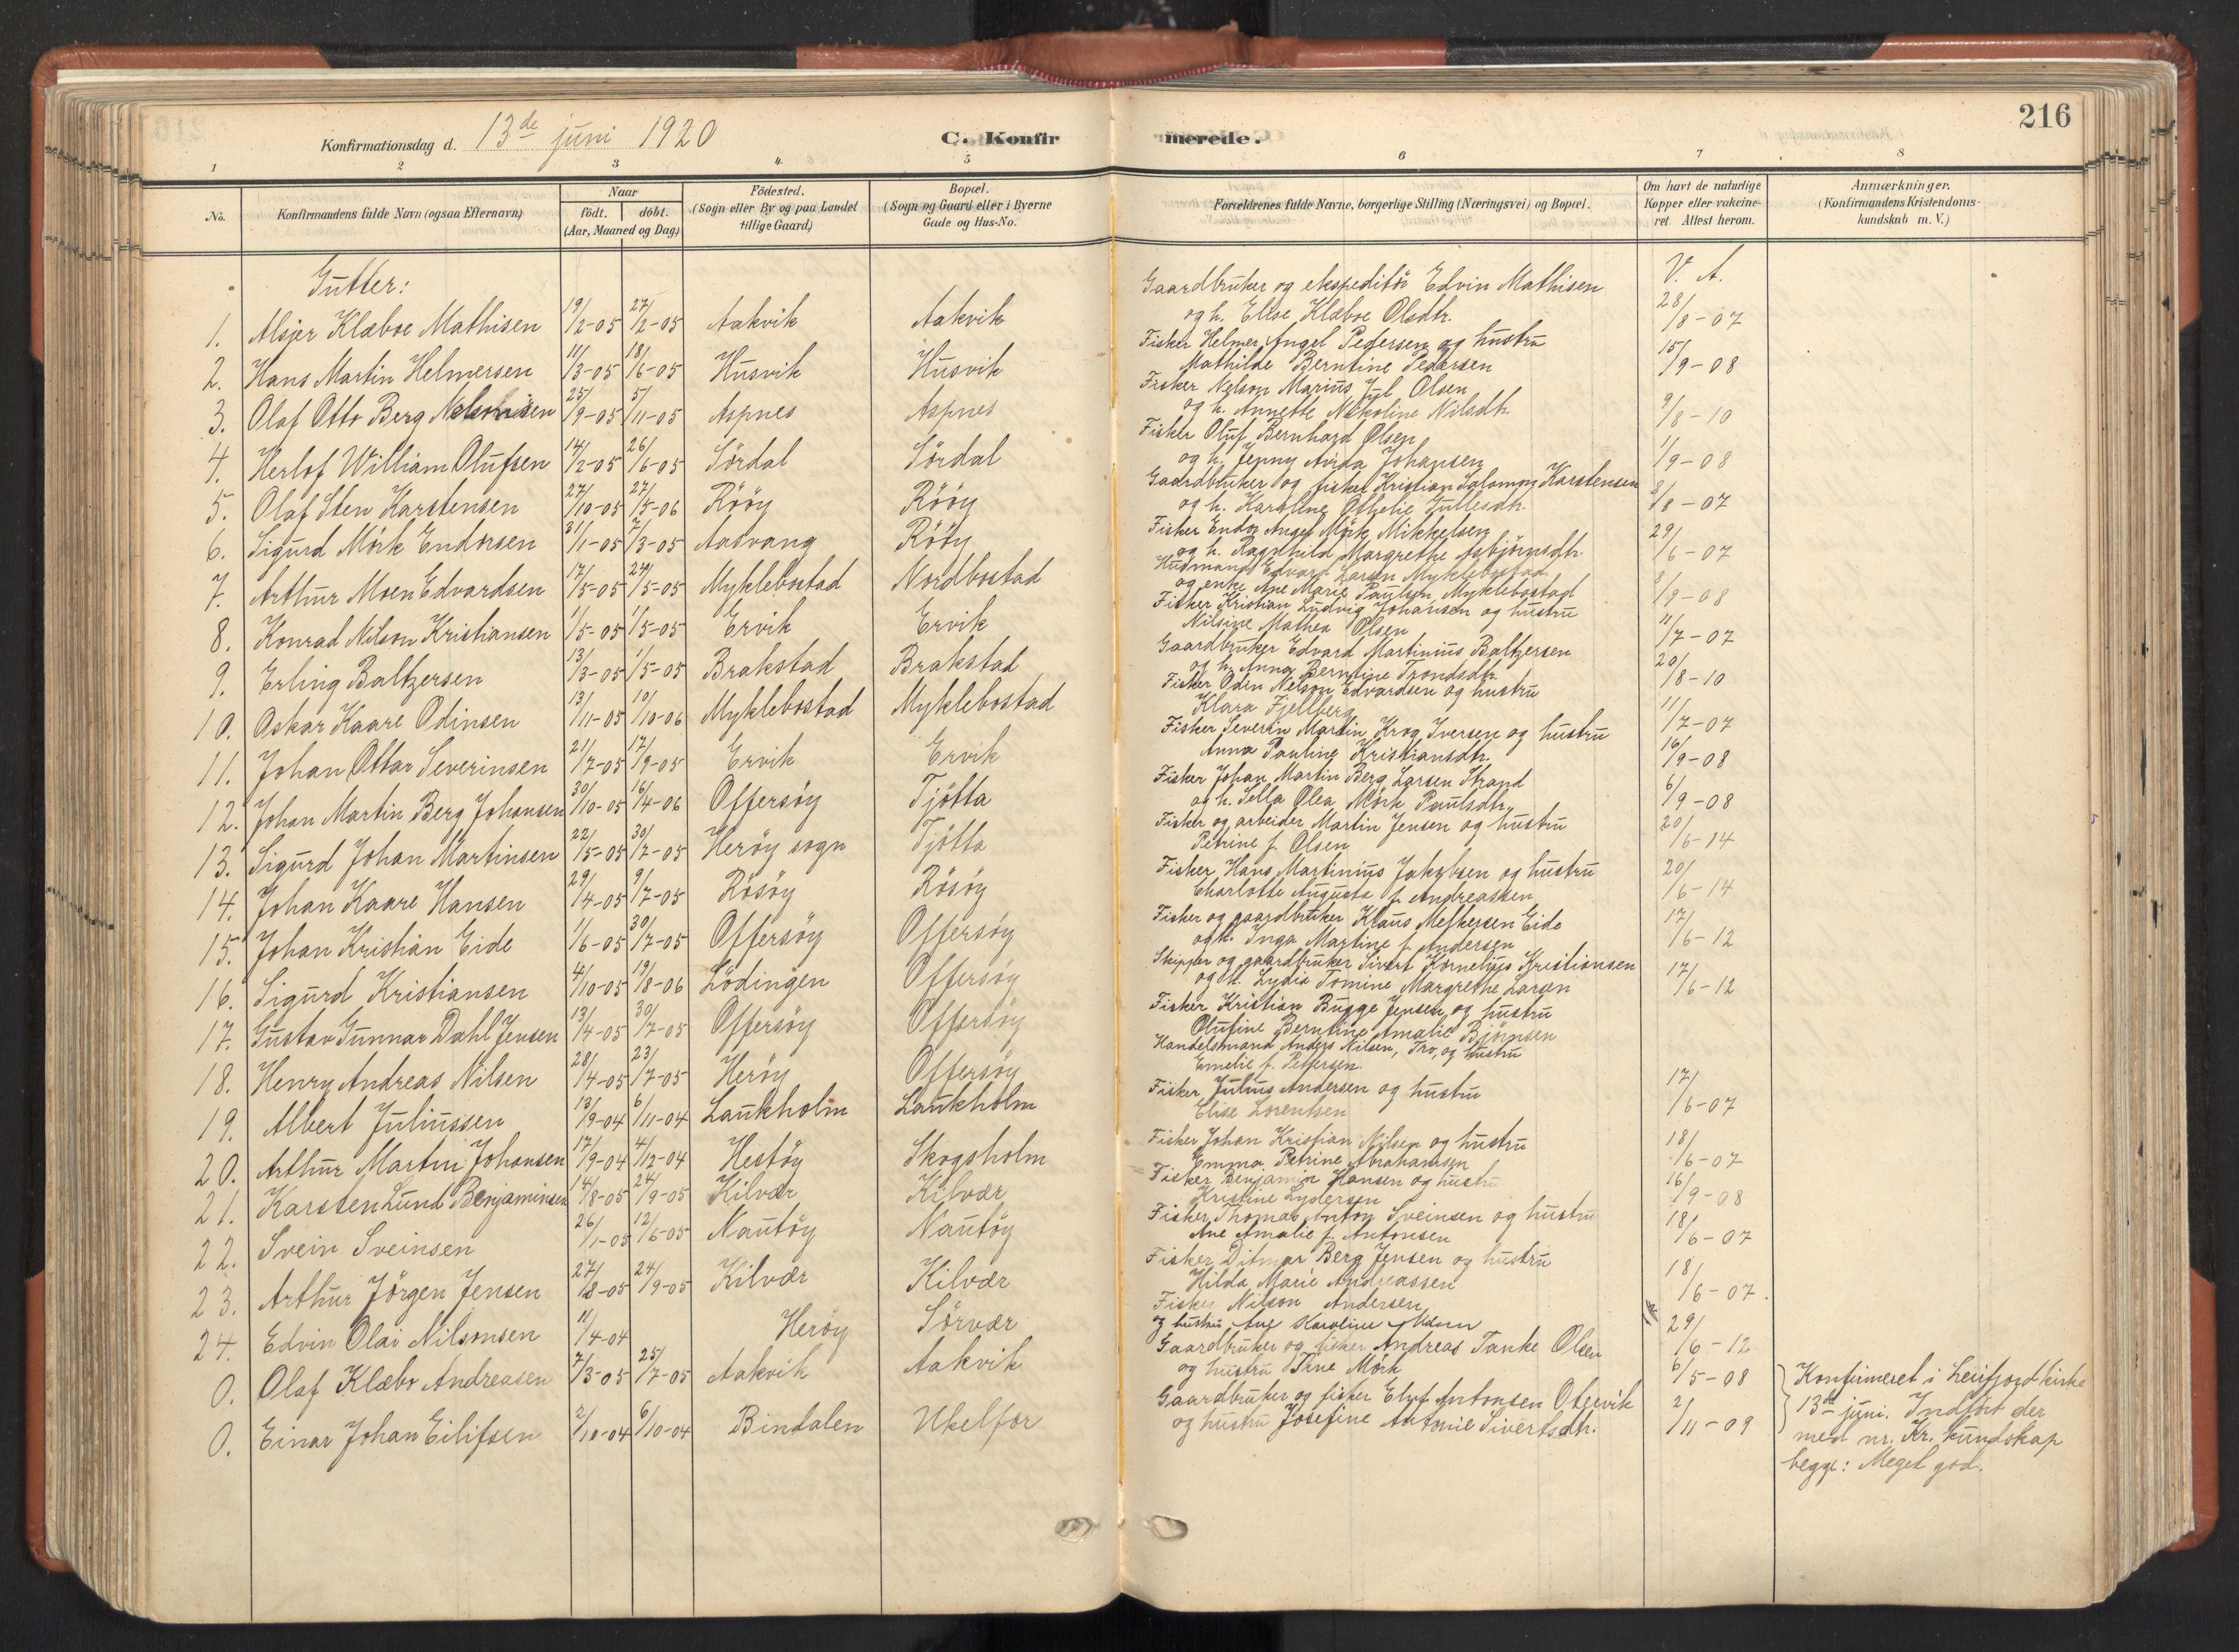 216
Konfirmationsdag d. 13de juni 1920
C. Konfirmerede.
1 2 3 4 5 6 7 8
No.
Konfirmandens fulde Navn (ogsaa Efternavn)
Naar
født. døbt.
(Aar, Maaned og Dag)
Födested.
(Sogn eller By og paa Landet
tillige Gaard)
Bopæl.
(Sogn og Gaard eller i Byerne
Gade og Hus-No.
Forældrenes fulde Navne, borgerlige Stilling (Næringsvei) og Bopæl.
Om havt de naturlige
Kopper eller vakcine-
ret Attest herom.
Anmærkninger.
(Konfirmandens Kristendoms-
kundskab m. V.)
Gutter:
V. A.
1. Alsjer Klæboe Mathisen 19/2-05 27/2-05 Aakvik Aakvik Gaardbruker og ekspeditör Edvin Mathisen
og h. Elise Klæboe Olsdtr. 28/8-07
2. Hans Martin Helmersen 11/3-05 18/6-05 Husvik Husvik Fisker Helmer Angel Pedersen og hustru
Mathilde Berntine Pedersen 15/9-08
3. Olaf Otto Berg Nelsonsen 25/9-05 5/11-05 Aspnes Aspnes Fisker Nelson Marius Jul Olsen
og h. Annette Nikoline Nilsdtr. 9/8-10
4. Herlof William Olufsen 14/2-05 26/6-05 Sördal Sördal Fisker Oluf Bernhard Olsen
og h. Jenny Avida Johansen 1/9-08
5. Olaf Sten Karstensen 27/10-05 27/5-06 Röøy Röøy Gaardbruker og fisker Kristian Salomon Karstensen
og h. Karoline Othelie Tullesdtr. 8/8-07
6. Sigurd Mörk Endorsen 31/1-05 7/3-05 Aasvang Röøy Fisker Endor Angel Mörk Mikkelsen
og h. Ragnhild Margrethe Asbjörnsdtr. 29/6-07
7. Arthur Moen Edvardsen 17/5-05 24/5-05 Myklebostad Nordbostad Husmand Edvard Larsen Myklebostad
og enke Ane Marie Paulsen Myklebostad 8/9-08
8. Konrad Nilson Kristiansen 1/5-05 1/5-05 Ervik Ervik Fisker Kristian Ludvig Johansen og hustru
Nilsine Mathea Olsen 11/7-07
9. Erling Baltzersen 13/3-05 1/5-05 Brakstad Brakstad Gaardbruker Edvard Martinius Baltzersen
og h. Anna Berntine Trondsdtr. 20/8-10
10. Oskar Kaare Odinsen 13/11-05 10/10-06 Myklebostad Myklebostad Fisker Odin Nelson Edvardsen og hustru
Klara Fjellberg 11/7-07
11. Johan Ottar Severinsen 21/7-05 17/9-05 Ervik Ervik Fisker Severin Martin Krog Iversen og hustru
Anna Pauline Kristiansdtr. 16/9-08
12. Johan Martin Berg Johansen 30/10-05 16/4-06 Offersöy Tjötta Fisker Johan Martin Berg Larsen Strand
og h. Sella Olea Mörk Paulsdtr. 6/9-08
13. Sigurd Johan Martinsen 22/5-05 30/7-05 Heröy sogn Tjötta Fisker og arbeider Martin Jensen og hustru
Petrine f. Olsen 20/6-14
14. Johan Kaare Hansen 29/4-05 9/7-05 Rösöy Rösöy Fisker Hans Martinius Jakobsen og hustru
Charlotte Augusta f. Andreassen 20/6-14
15. Johan Kristian Eide 1/6-05 30/7-05 Offersöy Offersöy Fisker og gaardbruker Klaus Meltersen Eide
og h. Inga Martine f. Andersen 17/6-12
16. Sigurd Kristiansen 4/10-05 19/8-06 Lödingen Offersöy Skipper og gaardbruker Sivert Kornelius Kristiansen
og h. Lydia Tomine Margrethe Larsen 17/6-12
17. Gustav Gunnar Dahl Jensen 13/4-05 30/7-05 Offersöy Offersöy Fisker Kristian Bugge Jensen og hustru
Olufine Berntine Amalie Björnsen
18. Henry Andreas Nilsen 28/4-05 23/7-05 Heröy Offersöy Handelsmand Anders Nilsen, Tro, og hustru
Emelie f. Pettersen
19. Albert Juliussen 13/9-04 6/11-04 Laukholm Laukholm Fisker Julius Andersen og hustru
Elise Lorentsen 17/6-07
20. Arthur Martin Johansen 17/9-04 4/12-04 Hestöy Skogsholm Fisker Johan Kristian Nilsen og hustru
Emma Petrine Abrahamsen 18/6-07
21. Karsten Lund Benjaminsen 14/8-05 24/9-05 Kilvær Kilvær Fisker Benjamin Hansen og hustru
Kristine Lydersen 16/9-08
22. Svein Sveinsen 26/1-05 12/6-05 Nautöy Nautöy Fisker Thomas Anton Sveinsen og hustru
Ane Amalie f. Antonsen 18/6-07
23. Arthur Jörgen Jensen 27/8-05 24/9-05 Kilvær Kilvær Fisker Ditmar Berg Jensen og hustru
Hilda Marie Andreassen 18/6-07.
24. Edvin Olai Nilsonsen 11/4-04 Heröy Sörvær Fisker Nilson Andersen
og hustru Ane Karoline 29/6-12
0. Olaf Klæbo Andreasen 7/3-05 25/7-05 Aakvik Aakvik Gaardbruker og fisker Andreas Tanke Olsen
og hustru Trine Mörk 6/5-08
0. Einar Johan Eilifsen 2/10-04 6/10-04 Bindalen Ukelfor Gaardbruker og fisker Antonsen
og hustru Josefine Antonie Sivertsdtr. 2/11-09
Konfirmeret i Leirfjord kirke
13de juni. Indført der
med nr. Kr. kundskap
begge: Meget god.